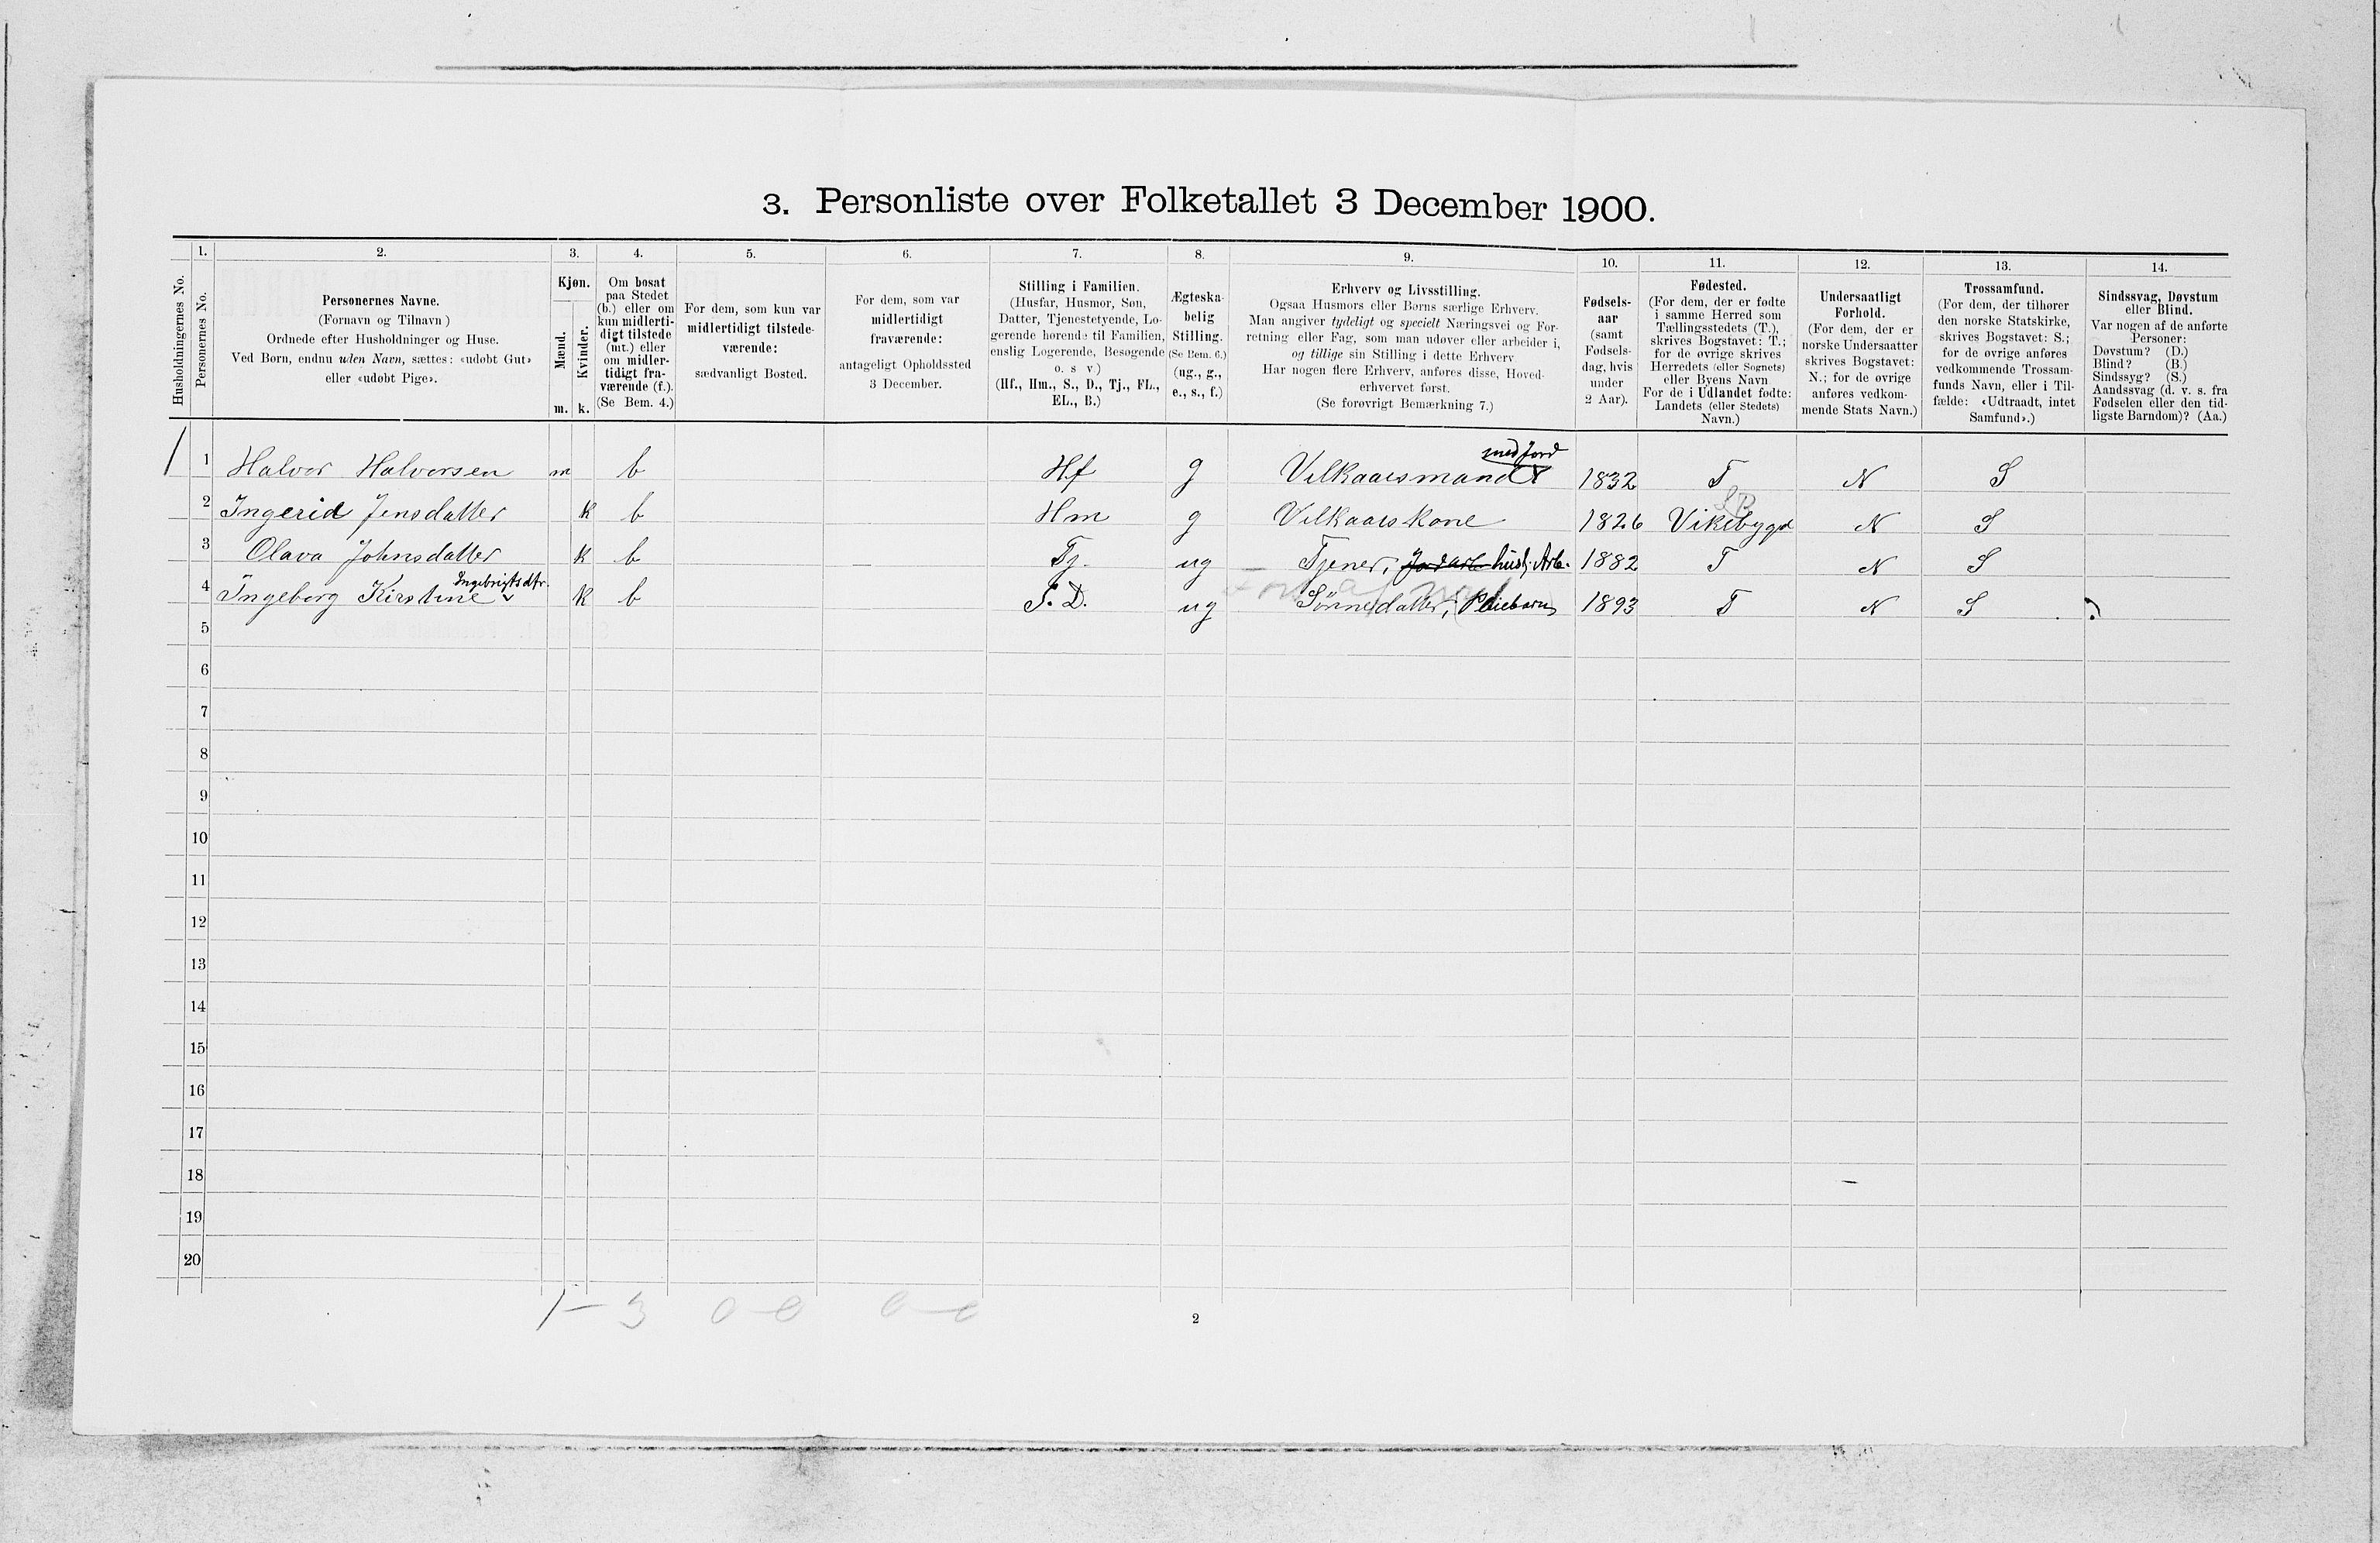 3. Personliste over Folketallet 3 December 1900.
1. 2. 3. 4. 5. 6. 7. 8. 9. 10. 11. 12. 13. 14.
Husholdningernes No.
Personernes No.
Personernes Navne.
(Fornavn og Tilnavn)
Ordnede efter Husholdninger og Huse.
Ved Børn, endnu uden Navn, sættes: «udøbt Gut»
eller «udøbt Pige».
Kjøn.
Mænd.
Kvinder.
m. k.
Om bosat
paa Stedet
(b.) eller om
kun midlerti-
digt tilstede
(mt.) eller
om midler-
tidigt fra-
værende (f.).
(Se Bem. 4.)
For dem, som kun var
midlertidigt tilstede-
værende:
sædvanligt Bosted.
For dem, som var
midlertidigt
fraværende:
antageligt Opholdssted
3 December.
Stilling i Familien.
(Husfar, Husmor, Søn,
Datter, Tjenestetyende, Lo-
gerende hørende til Familien,
enslig Logerende, Besøgende
o. s v)
(Hf., Hm., S., D., Tj., FL.,
EL., B.)
Ægteska-
belig
Stilling.
(Se Bem. 6.)
(ug., g.,
e., s., f.)
Erhverv og Livsstilling.
Ogsaa Husmors eller Børns særlige Erhverv.
Man angiver tydeligt og specielt Næringsvei og For-
retning eller Fag, som man udøver eller arbeider i,
og tillige sin Stilling i dette Erhverv
Har nogen flere Erhverv, anføres disse, Hoved-
erhvervet først.
(Se forøvrigt Bemærkning 7.)
Fødsels-
aar
(samt
Fødsels-
dag, hvis
under
2 Aar).
Fødested.
(For dem, der er fødte
i samme Herred som
Tællingsstedets (T.),
skrives Bogstavet: T.;
for de øvrige skrives
Herredets (eller Sognets)
eller Byens Navn
For de i Udlandet fødte:
Landets (eller Stedets)
Navn.)
Undersaatligt
Forhold.
(For dem, der er
norske Undersaatter
skrives Bogstavet:
N.; for de øvrige
anføres vedkom-
mende Stats Navn.)
Trossamfund.
(For dem, der tilhører
den norske Statskirke,
skrives Bogstavet: S.;
for de øvrige anføres
vedkommende Trossam-
funds Navn, eller i Til-
fælde: «Udtraadt, intet
Samfund».)
Sindssvag, Døvstum
eller Blind.
Var nogen af de anførte
Personer:
Døvstum? (D.)
Blind? (B.)
Sindssyg? (S.)
Aandssvag (d. v. s. fra
Fødselen eller den tid-
ligste Barndom)? (Aa.)
med Jord
1 1 Halvor Halvorsen m b Hf g Vilkaarsmand 1832 T N S
2 Ingerid Jensdatter k b Hm g Vilkaarskone 1826 Vikebygd N S
3 Olava Johnsdatter k b Tj. ug Tjener, husl. Arb. 1882 T N S
Ingebrigtsdtr.
4 Ingeborg Kirstine k b S. D. ug Sønnedatter, Pleiebarn 1893 T N S
5
6
7
8
9
10
11
12
13
14
15
16
17
18
19
20
1 - 3 0 - 0 0 - 0
2